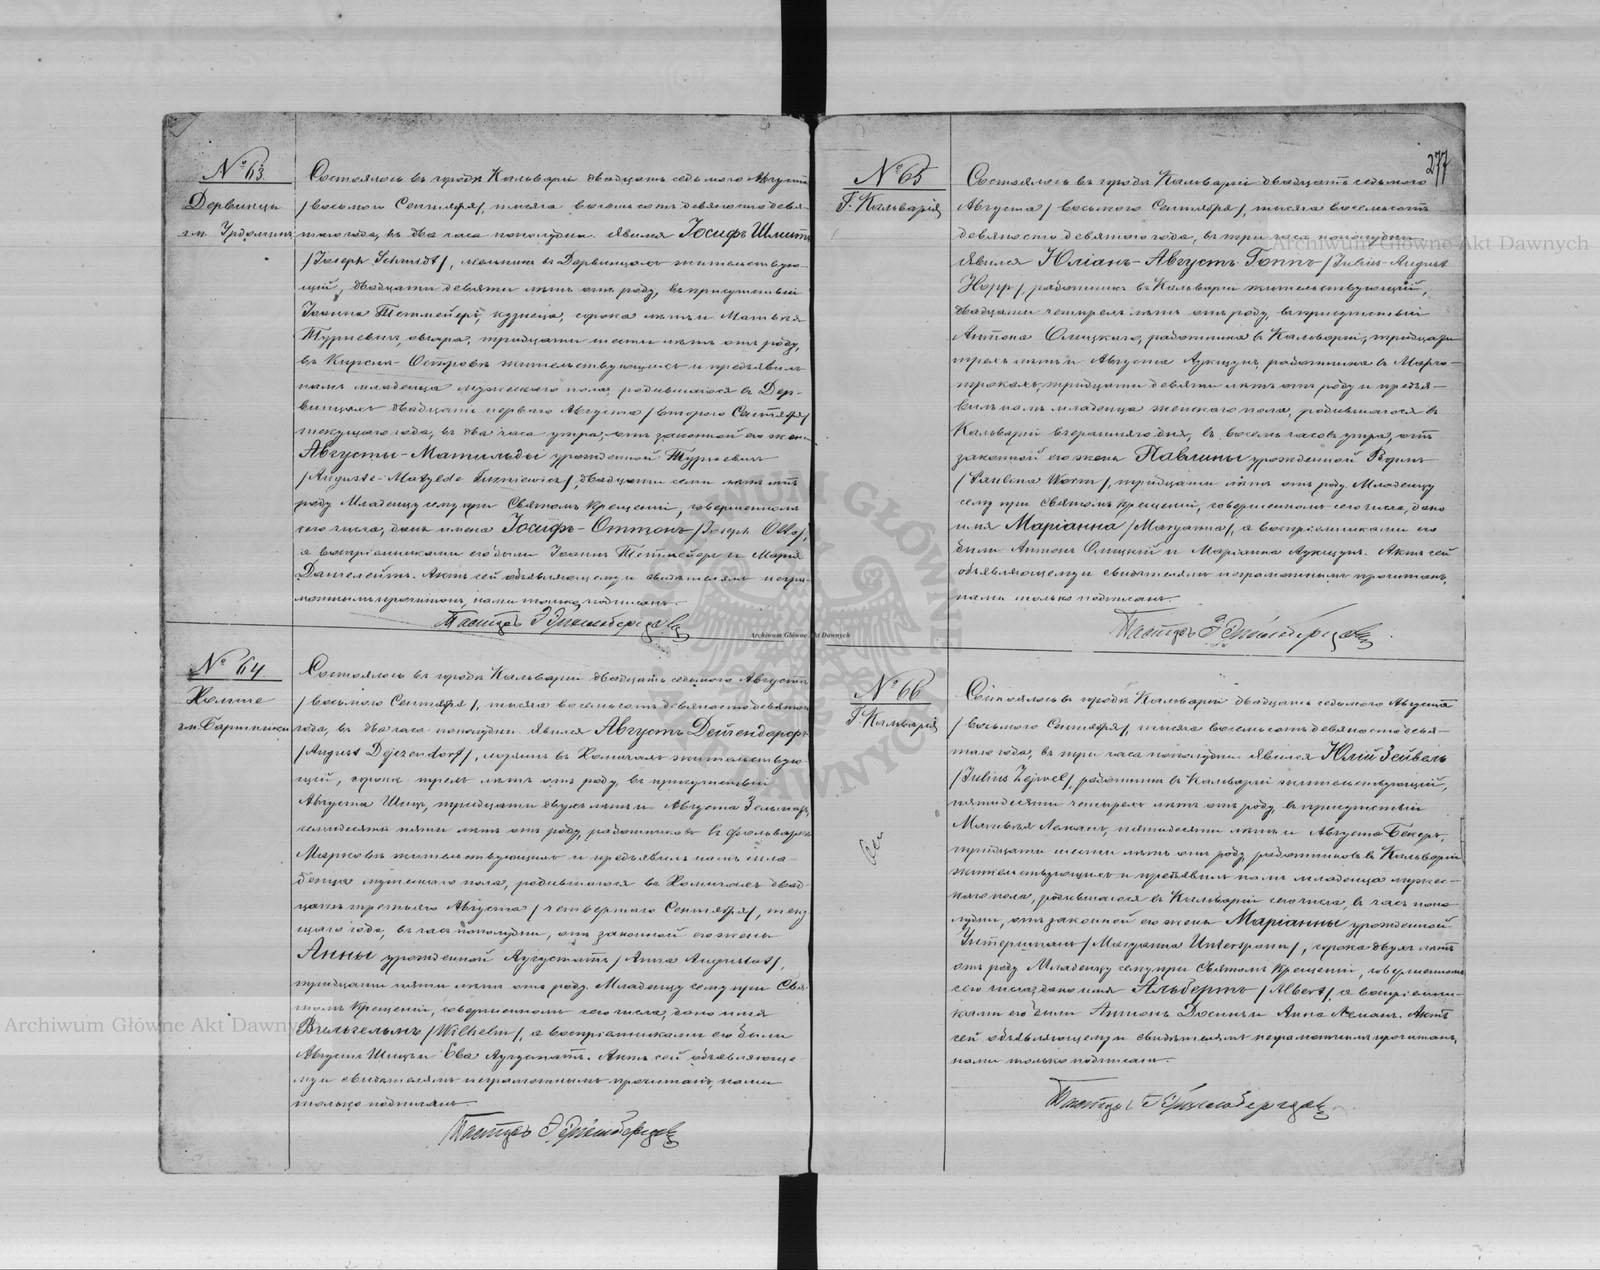 277
№ 63
Дервинцы
гм. Урдоминъ
Состоялось въ городѣ Кальваріи двадцать седьмого Августа
/восьмого Сентября/, тысяча восемьсотъ девяносто девя-
таго года, въ два часа пополудни. Явился Іосифъ Шмитъ
/Joseph Schmidt/, мельникъ въ Дервинцахъ жительствую-
щій, двадцати девяти лѣтъ отъ роду, въ присутствіи
Іоанна Тетмейера, кузнеца, сорока лѣтъ и Матвѣя
Турневичъ, овчара, тридцати шести лѣтъ отъ роду,
въ Кирсна-Островѣ жительствующихъ и предъявилъ
намъ младенца мужескаго пола, родившагося въ Дер-
винцахъ двадцать перваго Августа /второго Сентября/
текущаго года, въ два часа утра, отъ законной его жены
Августы-Матильды урожденной Турневичъ
/Auguste-Matylde Turniewicz/, двадцати семи лѣтъ отъ
роду. Младенцу сему при Святомъ Крещеніи, совершенномъ
сего числа, даны имена Іосифъ-Оттонъ /Joseph Otto/,
а воспріемниками его были Іоаннъ Тетмейеръ и Марія
Дангелейтъ. Актъ сей объявляющему и свидѣтелямъ негра-
мотнымъ прочитанъ, нами только подписанъ.
Пасторъ
№ 64
гм.
Состоялось въ городѣ Кальваріи двадцать седьмого Августа
/восьмого Сентября/, тысяча восемьсотъ девяносто девятаго
года, въ два часа пополудни. Явился Августъ Дейчендорфъ
/August Dejczendorf/, въ жительствую-
щій, сорока трехъ лѣтъ отъ роду, въ присутствіи
Августа Шицъ, тридцати двухъ лѣтъ и Августа
семидесяти пяти лѣтъ отъ роду, работниковъ въ фольваркѣ
Марковъ жительствующихъ и предъявилъ намъ мла-
денца мужескаго пола, родившагося въ двад-
цать третьяго Августа /четвертаго Сентября/, теку-
щаго года, въ часъ пополудни, отъ законной его жены
Анны урожденной Аугустатъ /Anna Augustat/,
тридцати пяти лѣтъ отъ роду. Младенцу сему при Свя-
томъ Крещеніи, совершенномъ сего числа, дано имя
Вильгельмъ /Wilhelm/, а воспріемниками его были
Августъ Шицъ и Ева Аугустатъ. Актъ сей объявляюще-
му и свидѣтелямъ неграмотнымъ прочитанъ, нами
только подписанъ.
Пасторъ
№ 65
Г. Кальварія
Состоялось въ городѣ Кальваріи двадцать седьмого
Августа /восьмого Сентября/, тысяча восемьсотъ
девяносто девятаго года, въ три часа пополудни
Явился Юліанъ-Августъ Гоппъ /Julius-August
Hopp/, работникъ въ Кальваріи жительствующій,
двадцати четырехъ лѣтъ отъ роду, въ присутствіи
Антона Олицкаго, работника въ Кальваріи, тридцати
трехъ лѣтъ и Августа Аукщунъ, работника въ
тридцати девяти лѣтъ отъ роду и предъя-
вилъ намъ младенца женскаго пола, родившагося въ
Кальваріи вчерашняго дня, въ восемь часовъ утра, отъ
законной его жены Павлины урожденной Вормъ
/Paulina Worm/, тридцати лѣтъ отъ роду. Младенцу
сему при Святомъ Крещеніи, совершенномъ сего числа, дано
имя Маріанна /Maryanna/, а воспріемниками его
были Антонъ Олицкій и Маріанна Аукщунъ. Актъ сей
объявляющему и свидѣтелямъ неграмотнымъ прочитанъ,
нами только подписанъ.
Пасторъ
№ 66
Г. Кальварія
Состоялось въ городѣ Кальваріи двадцать седьмого Августа
/восьмого Сентября/, тысяча восемьсотъ девяносто девя-
таго года, въ три часа пополудни. Явился Юлій Зейвель
/Julius Zejwel/, работникъ въ Кальваріи жительствующій,
пятидесяти четырехъ лѣтъ отъ роду, въ присутствіи
Матвѣя Леманъ, пятидесяти лѣтъ и Августа Бекеръ,
тридцати шести лѣтъ отъ роду, работниковъ въ Кальваріи
жительствующихъ и предъявилъ намъ младенца мужес-
каго пола, родившагося въ Кальваріи сего числа, въ часъ попо-
лудни, отъ законной его жены Маріанны урожденной
Унтершпанъ /Maryanna Unterspann/, сорока двухъ лѣтъ
отъ роду. Младенцу сему при Святомъ Крещеніи, совершенномъ
сего числа, дано имя Альбертъ /Albert/, а воспріемни-
ками его были Антонъ и Анна Леманъ. Актъ
сей объявляющему и свидѣтелямъ неграмотнымъ прочитанъ,
нами только подписанъ.
Пасторъ
Archiwum Główne Akt Dawnych
Archiwum Główne Akt Dawnych
Archiwum Główne Akt Dawnych
ARCHIWUM GŁÓWNE AKT DAWNYCH